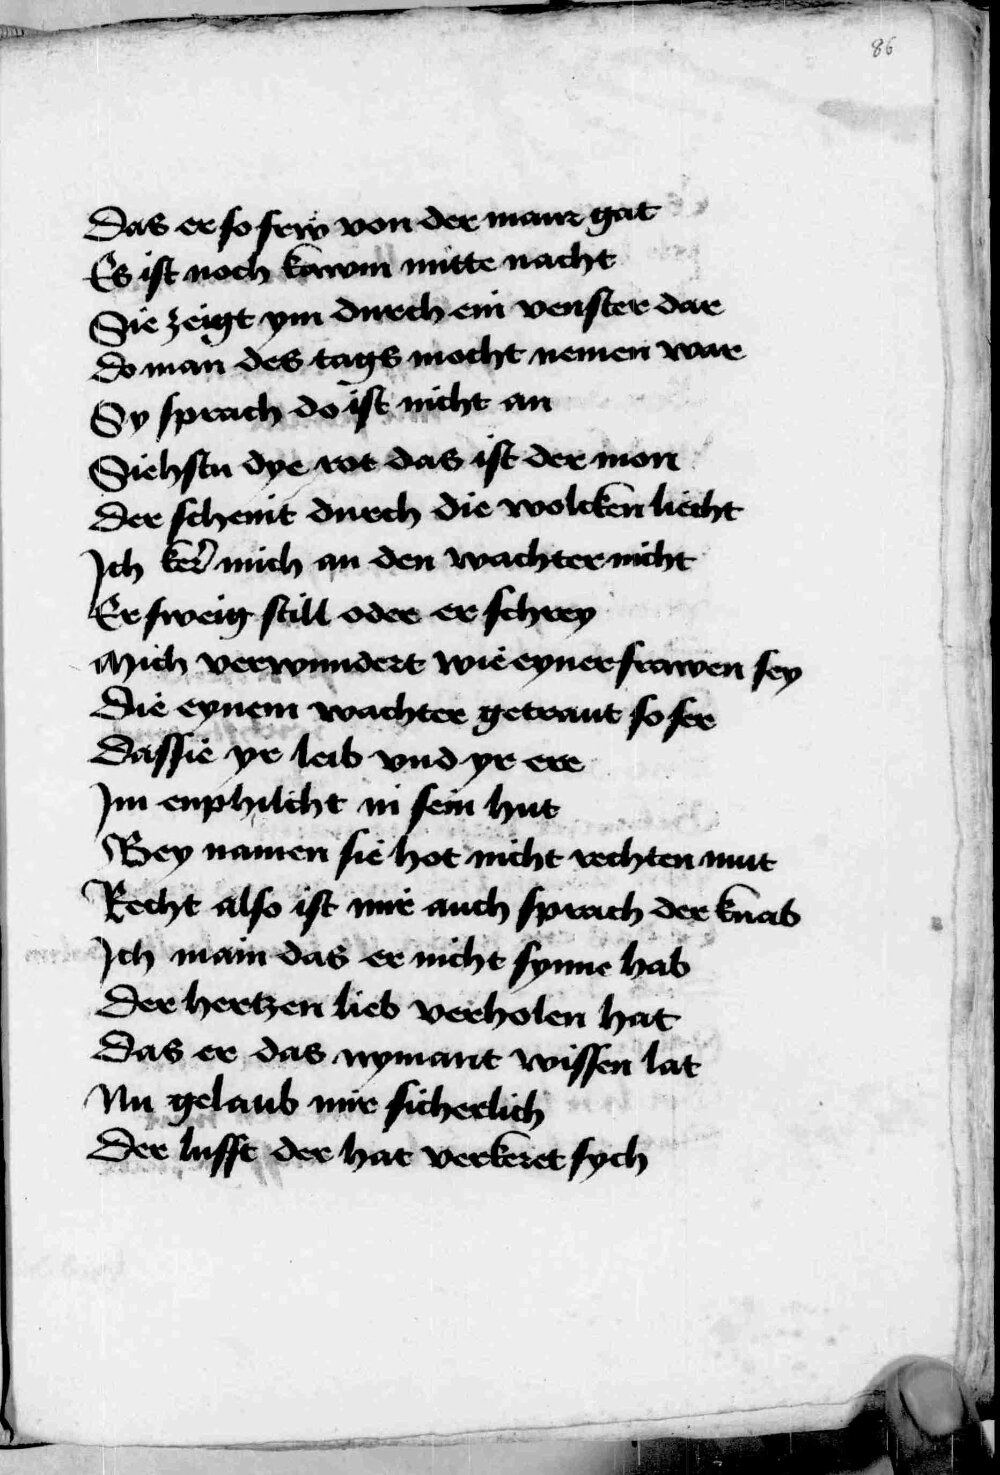 86
Das er so frw von der maur gat
Es ist noch kawm mitte nacht
Sie zeigt ym durch ein venster dar
do man des tags mocht nemen war
Sy sprach do ist nicht an
Siehstu dye rot das ist der mon
Der scheint durch die wolcken liecht
Ich ker mich an den wachter nicht
Er sweig still oder er schrey
Mich verwundert wie eyner frawen sey
Die eynem wachter getraut so ser
Das sie yr leib vnd yr ere
Im enphilcht in sein hut
Bey namen sie hot nicht rechten mut
Recht also ist mir auch sprach der knab
Ich main das er nicht synne hab
Der hertzen lieb verholen hat
Das er das nymant wissen lat
Nu gelaub mir sicherlich
Der lufft der hat verkeret sych